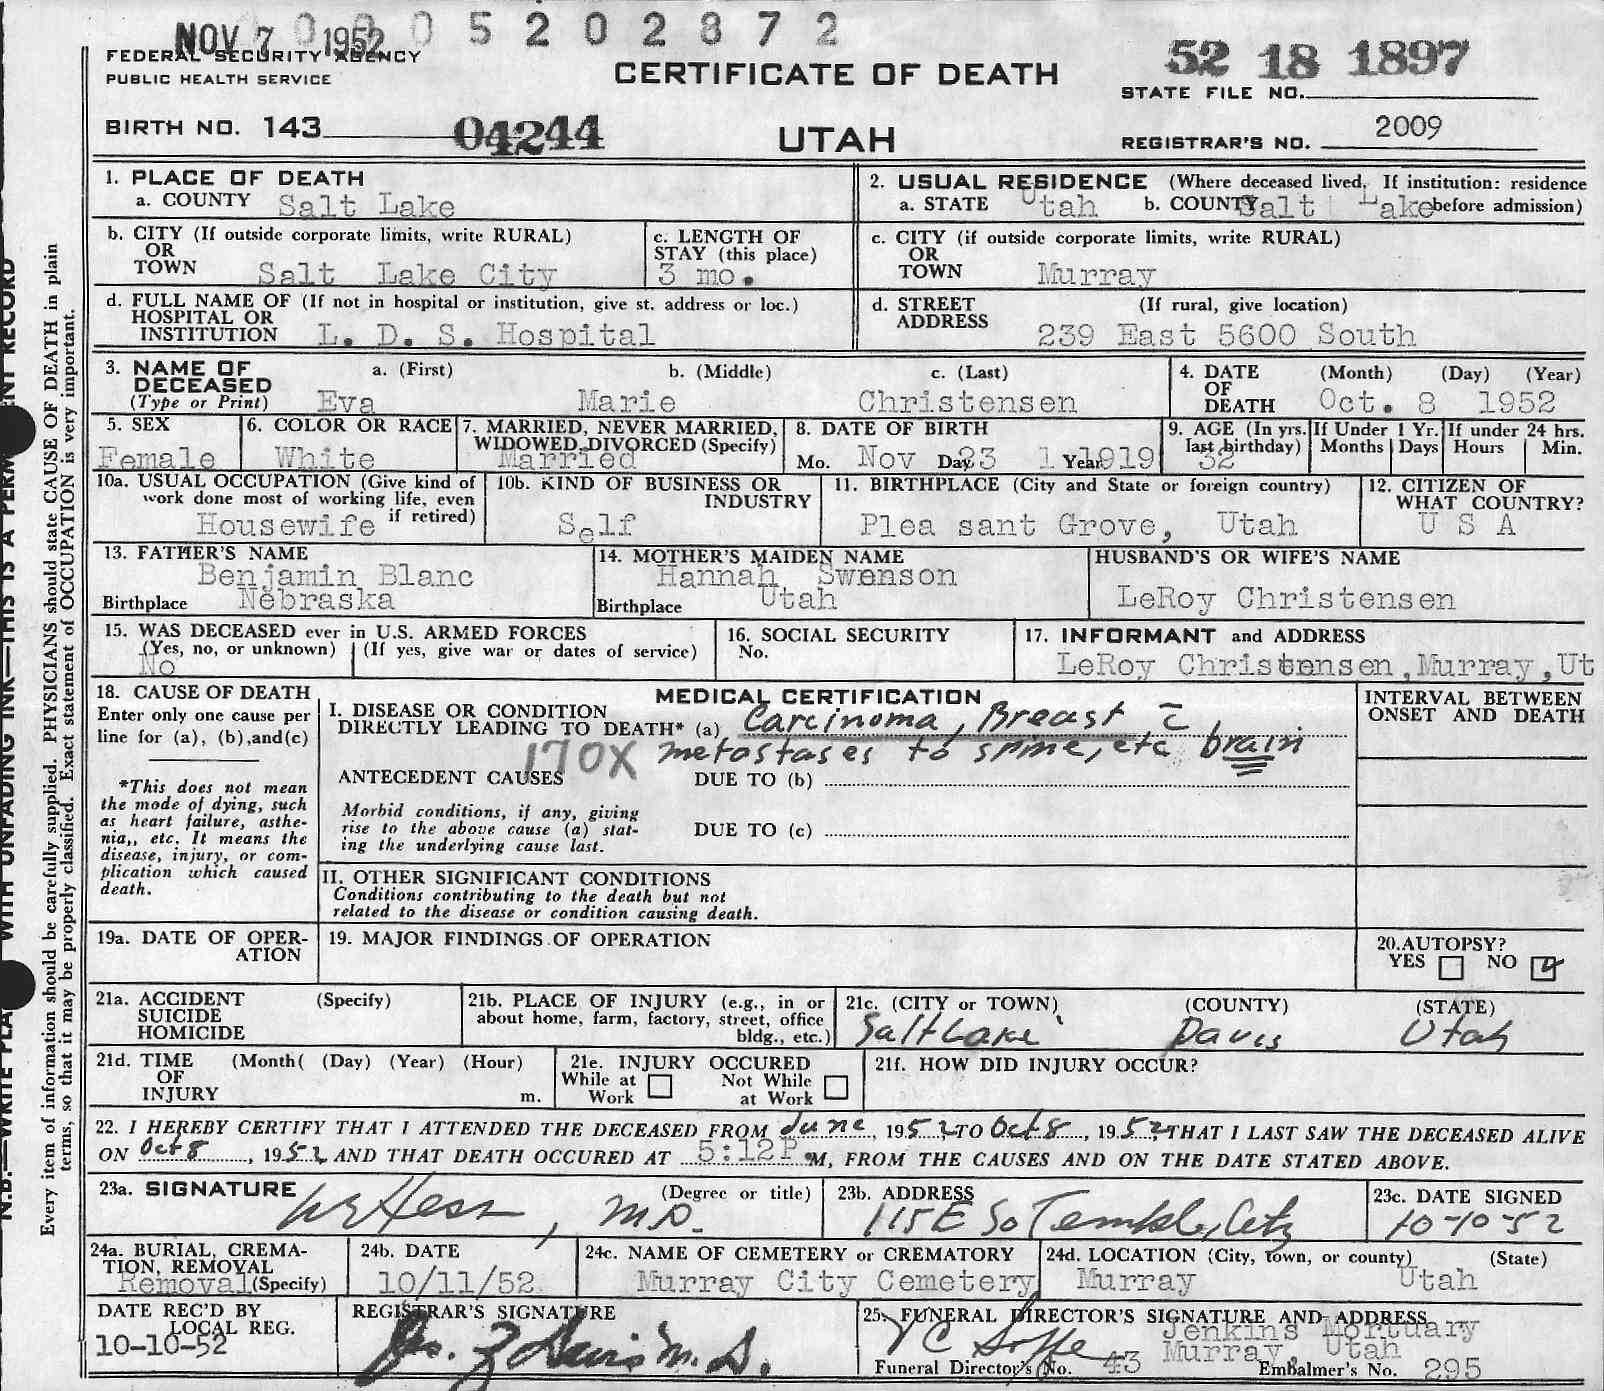 NOV 7 1952 0 0 0 5 2 0 2 8 7 2
FEDERAL SECURITY AGENCY
PUBLIC HEALTH SERVICE
CERTIFICATE OF DEATH
52 18 1897
STATE FILE NO.
BIRTH NO. 143 04244
UTAH
REGISTRAR'S NO. 2009
1. PLACE OF DEATH
a. COUNTY Salt Lake
2. USUAL RESIDENCE (Where deceased lived, If institution: residence
a. STATE Utah b. COUNTY Salt Lake before admission)
b. CITY (If outside corporate limits, write RURAL)
OR
TOWN Salt Lake City
c. LENGTH OF
STAY (this place)
3 mo.
c. CITY (if outside corporate limits, write RURAL)
OR
TOWN Murray
d. FULL NAME OF (If not in hospital or institution, give st. address or loc.)
HOSPITAL OR
INSTITUTION L. D. S. Hospital
d. STREET (If rural, give location)
ADDRESS 239 East 5600 South
3. NAME OF a. (First) b. (Middle) c. (Last)
DECEASED
(Type or Print) Eva Marie Christensen
4. DATE (Month) (Day) (Year)
OF
DEATH Oct. 8 1952
5. SEX
Female
6. COLOR OR RACE
White
7. MARRIED, NEVER MARRIED,
WIDOWED, DIVORCED (Specify)
Married
8. DATE OF BIRTH
Mo. Nov Day 23 1 Year 1919
9. AGE (In yrs.
last birthday)
32
If Under 1 Yr.
Months Days
If under 24 hrs.
Hours Min.
10a. USUAL OCCUPATION (Give kind of
work done most of working life, even
if retired)
Housewife
10b. KIND OF BUSINESS OR
INDUSTRY
Self
11. BIRTHPLACE (City and State or foreign country)
Plea sant Grove, Utah
12. CITIZEN OF
WHAT COUNTRY?
U S A
13. FATHER'S NAME
Benjamin Blanc
Birthplace Nebraska
14. MOTHER'S MAIDEN NAME
Hannah Swenson
Birthplace Utah
HUSBAND'S OR WIFE'S NAME
LeRoy Christensen
15. WAS DECEASED ever in U.S. ARMED FORCES
(Yes, no, or unknown) (If yes, give war or dates of service)
No
16. SOCIAL SECURITY
No.
17. INFORMANT and ADDRESS
LeRoy Christensen, Murray, Ut
18. CAUSE OF DEATH
Enter only one cause per
line for (a), (b), and (c)
*This does not mean
the mode of dying, such
as heart failure, asthe-
nia,, etc. It means the
disease, injury, or com-
plication which caused
death.
MEDICAL CERTIFICATION
I. DISEASE OR CONDITION
DIRECTLY LEADING TO DEATH* (a) Carcinoma, Breast c̄
170X metastases to spine, etc brain
ANTECEDENT CAUSES DUE TO (b)
Morbid conditions, if any, giving
rise to the above cause (a) stat-
ing the underlying cause last.
DUE TO (c)
II. OTHER SIGNIFICANT CONDITIONS
Conditions contributing to the death but not
related to the disease or condition causing death.
INTERVAL BETWEEN
ONSET AND DEATH
19a. DATE OF OPER-
ATION
19. MAJOR FINDINGS OF OPERATION
20. AUTOPSY?
YES NO
21a. ACCIDENT (Specify)
SUICIDE
HOMICIDE
21b. PLACE OF INJURY (e.g., in or
about home, farm, factory, street, office
bldg., etc.)
21c. (CITY or TOWN) (COUNTY) (STATE)
Salt Lake Davis Utah
21d. TIME (Month( (Day) (Year) (Hour)
OF
INJURY m.
21e. INJURY OCCURED
While at Not While
Work at Work
21f. HOW DID INJURY OCCUR?
22. I HEREBY CERTIFY THAT I ATTENDED THE DECEASED FROM June, 1952, TO Oct 8, 1952, THAT I LAST SAW THE DECEASED ALIVE
ON Oct 8, 1952 AND THAT DEATH OCCURED AT 5:12P.M, FROM THE CAUSES AND ON THE DATE STATED ABOVE.
23a. SIGNATURE (Degree or title)
Hess, M.D.
23b. ADDRESS
115 E So Temple, City
23c. DATE SIGNED
10-10-52
24a. BURIAL, CREMA-
TION, REMOVAL
Removal (Specify)
24b. DATE
10/11/52
24c. NAME OF CEMETERY or CREMATORY
Murray City Cemetery
24d. LOCATION (City, town, or county) (State)
Murray Utah
DATE REC'D BY
LOCAL REG.
10-10-52
REGISTRAR'S SIGNATURE
Davis M. D.
25. FUNERAL DIRECTOR'S SIGNATURE AND ADDRESS
Jenkins Mortuary
Murray, Utah
Funeral Director's No. 43 Embalmer's No. 295
Every item of information should be carefully supplied. PHYSICIANS should state CAUSE OF DEATH in plain
terms, so that it may be properly classified. Exact statement of OCCUPATION is very important.
N.B.—WRITE PLA WITH UNFADING INK—THIS IS A PERM ENT RECORD